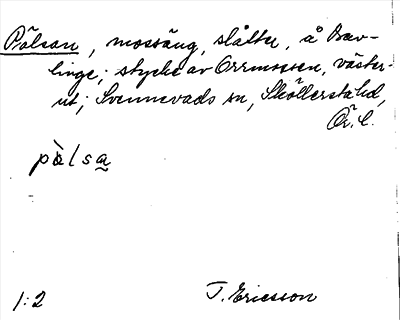 Pälsan, mossäng, slåtte, å Brev-
linge; stycke av Orrmossen, väster-
ut; Svennevads sn, Sköllerstahd,
Ör. l.
pälsa
1:2 T. Ericsson